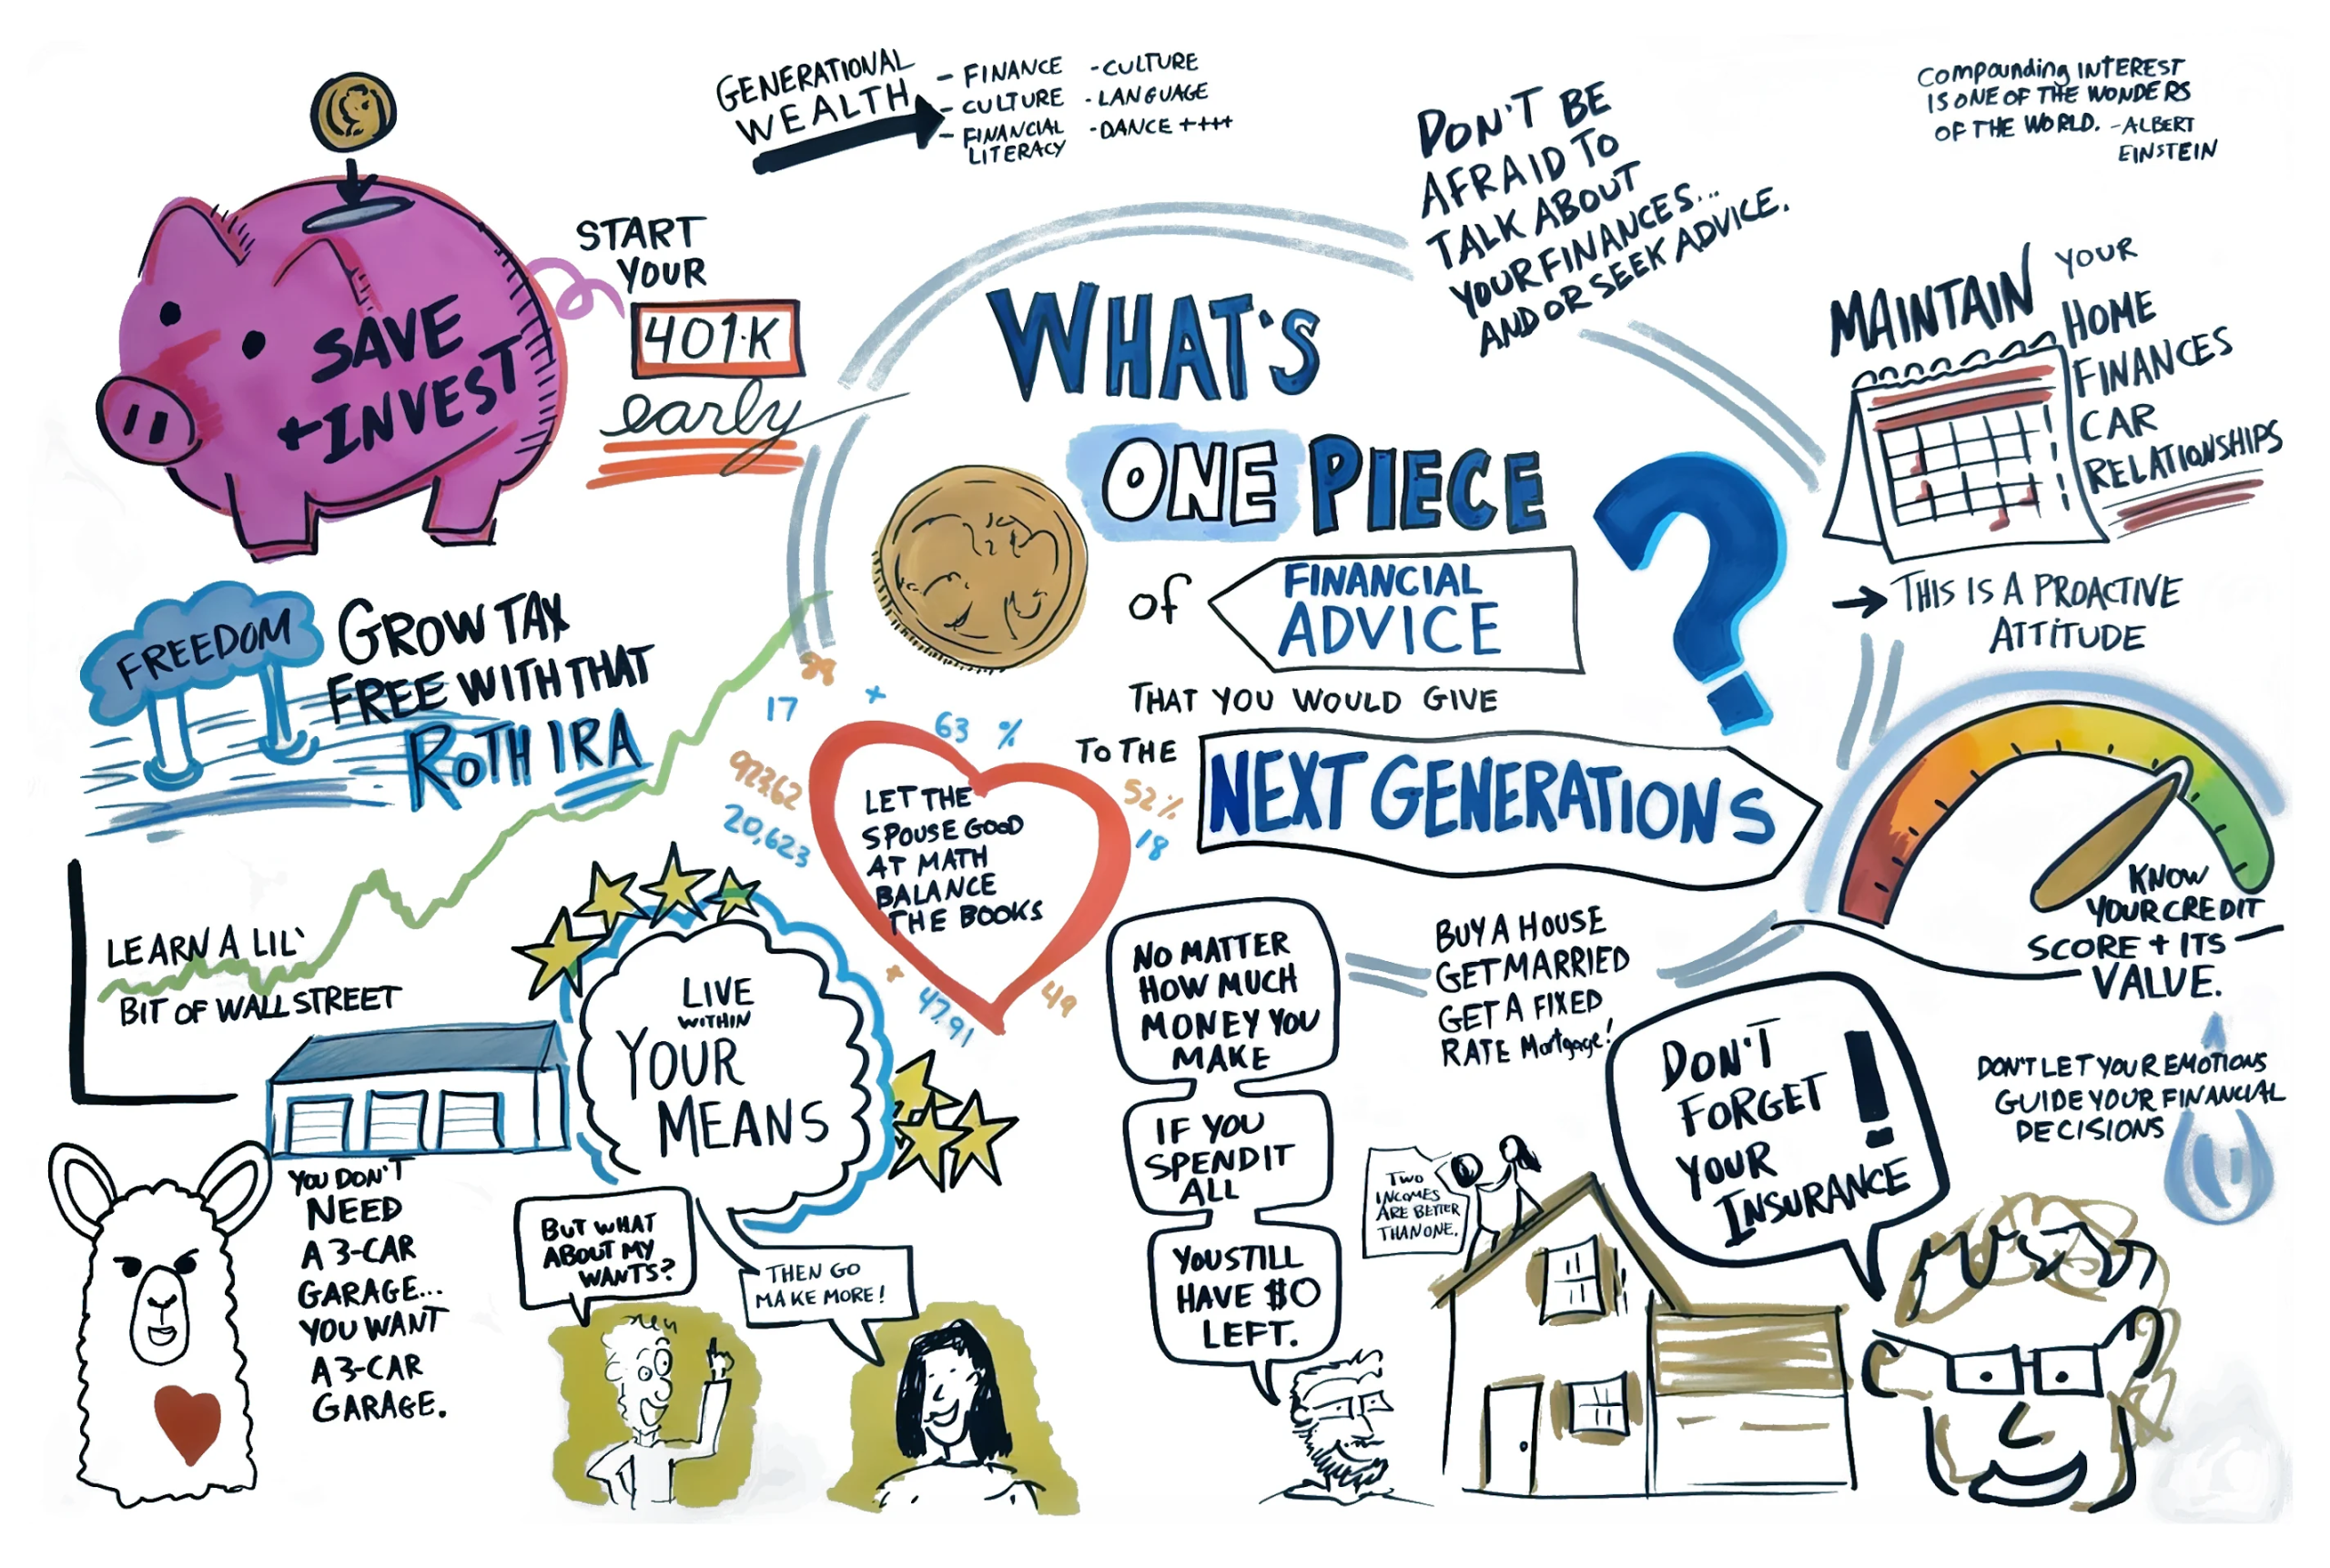 GENERATIONAL
WEALTH
- FINANCE
- CULTURE
- FINANCIAL
LITERACY
- CULTURE
- LANGUAGE
- DANCE ++++
DON'T BE
AFRAID TO
TALK ABOUT
YOUR FINANCES...
AND OR SEEK ADVICE.
Compounding INTEREST
IS ONE OF THE WONDERS
OF THE WORLD. - ALBERT
EINSTEIN
SAVE
+ INVEST
START
YOUR
401·K
early
WHAT'S
ONE PIECE
of FINANCIAL
ADVICE
THAT YOU WOULD GIVE
TO THE
NEXT GENERATIONS
?
MAINTAIN YOUR
HOME
FINANCES
CAR
RELATIONSHIPS
THIS IS A PROACTIVE
ATTITUDE
FREEDOM
GROW TAX
FREE WITH THAT
ROTH IRA
17
+
63 %
20,623
52%
18
+
47.91
49
LET THE
SPOUSE GOOD
AT MATH
BALANCE
THE BOOKS
KNOW
YOUR CREDIT
SCORE + ITS
VALUE.
LEARN A LIL'
BIT OF WALL STREET
LIVE
WITHIN
YOUR
MEANS
NO MATTER
HOW MUCH
MONEY YOU
MAKE
IF YOU
SPEND IT
ALL
YOU STILL
HAVE $0
LEFT.
BUY A HOUSE
GET MARRIED
GET A FIXED
RATE Mortgage!
DON'T
FORGET
YOUR
INSURANCE
!
DON'T LET YOUR EMOTIONS
GUIDE YOUR FINANCIAL
DECISIONS
YOU DON'T
NEED
A 3-CAR
GARAGE...
YOU WANT
A 3-CAR
GARAGE.
BUT WHAT
ABOUT MY
WANTS?
THEN GO
MAKE MORE!
TWO
INCOMES
ARE BETTER
THAN ONE.